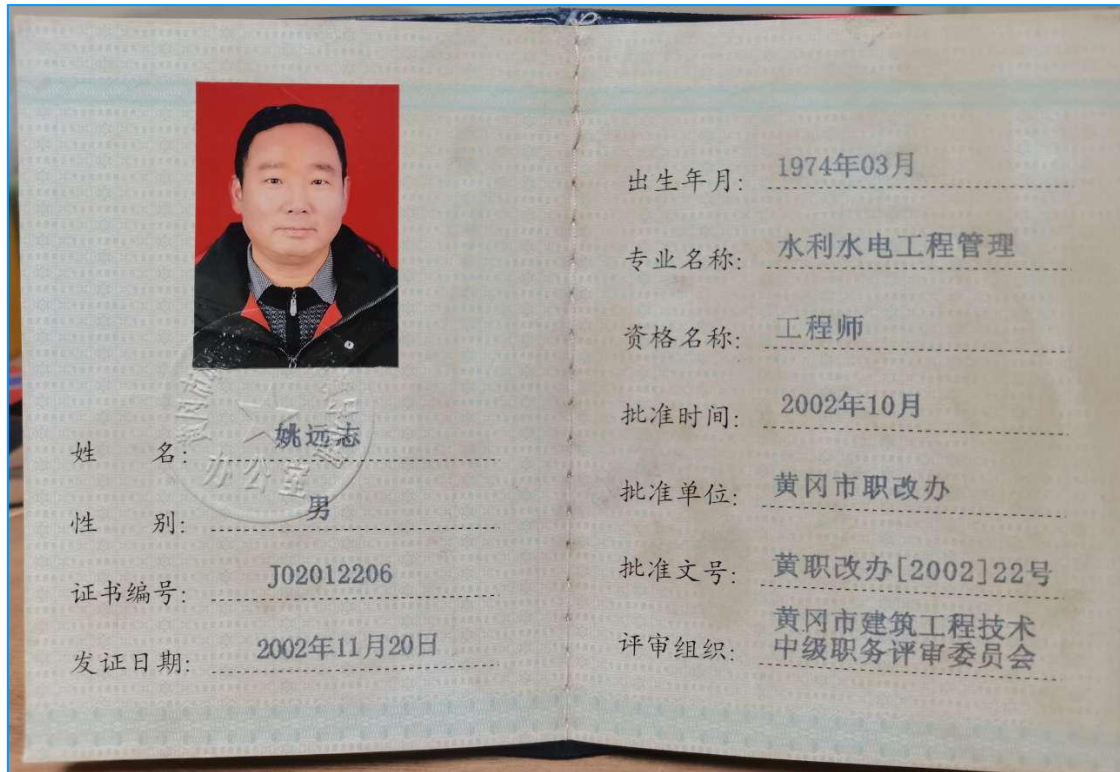 姓名：姚远志
性别：男
证书编号：J02012206
发证日期：2002年11月20日
办公室
出生年月：1974年03月
专业名称：水利水电工程管理
资格名称：工程师
批准时间：2002年10月
批准单位：黄冈市职改办
批准文号：黄职改办[2002]22号
评审组织：黄冈市建筑工程技术
中级职务评审委员会